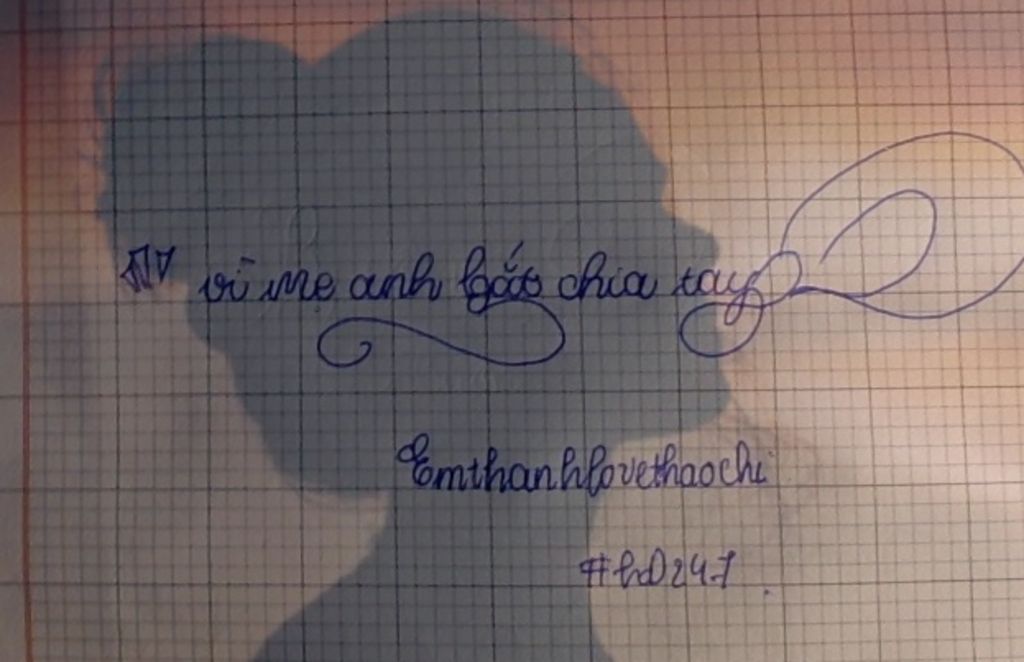 vì mẹ anh bắt chia tay
Emthanhlovethaochi
#hD247